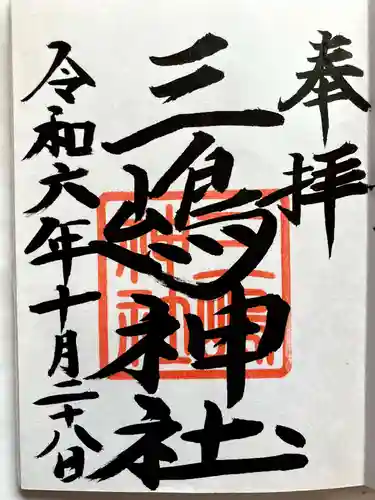 奉拝
三嶋神社
三嶋神社
令和六年十月二十八日